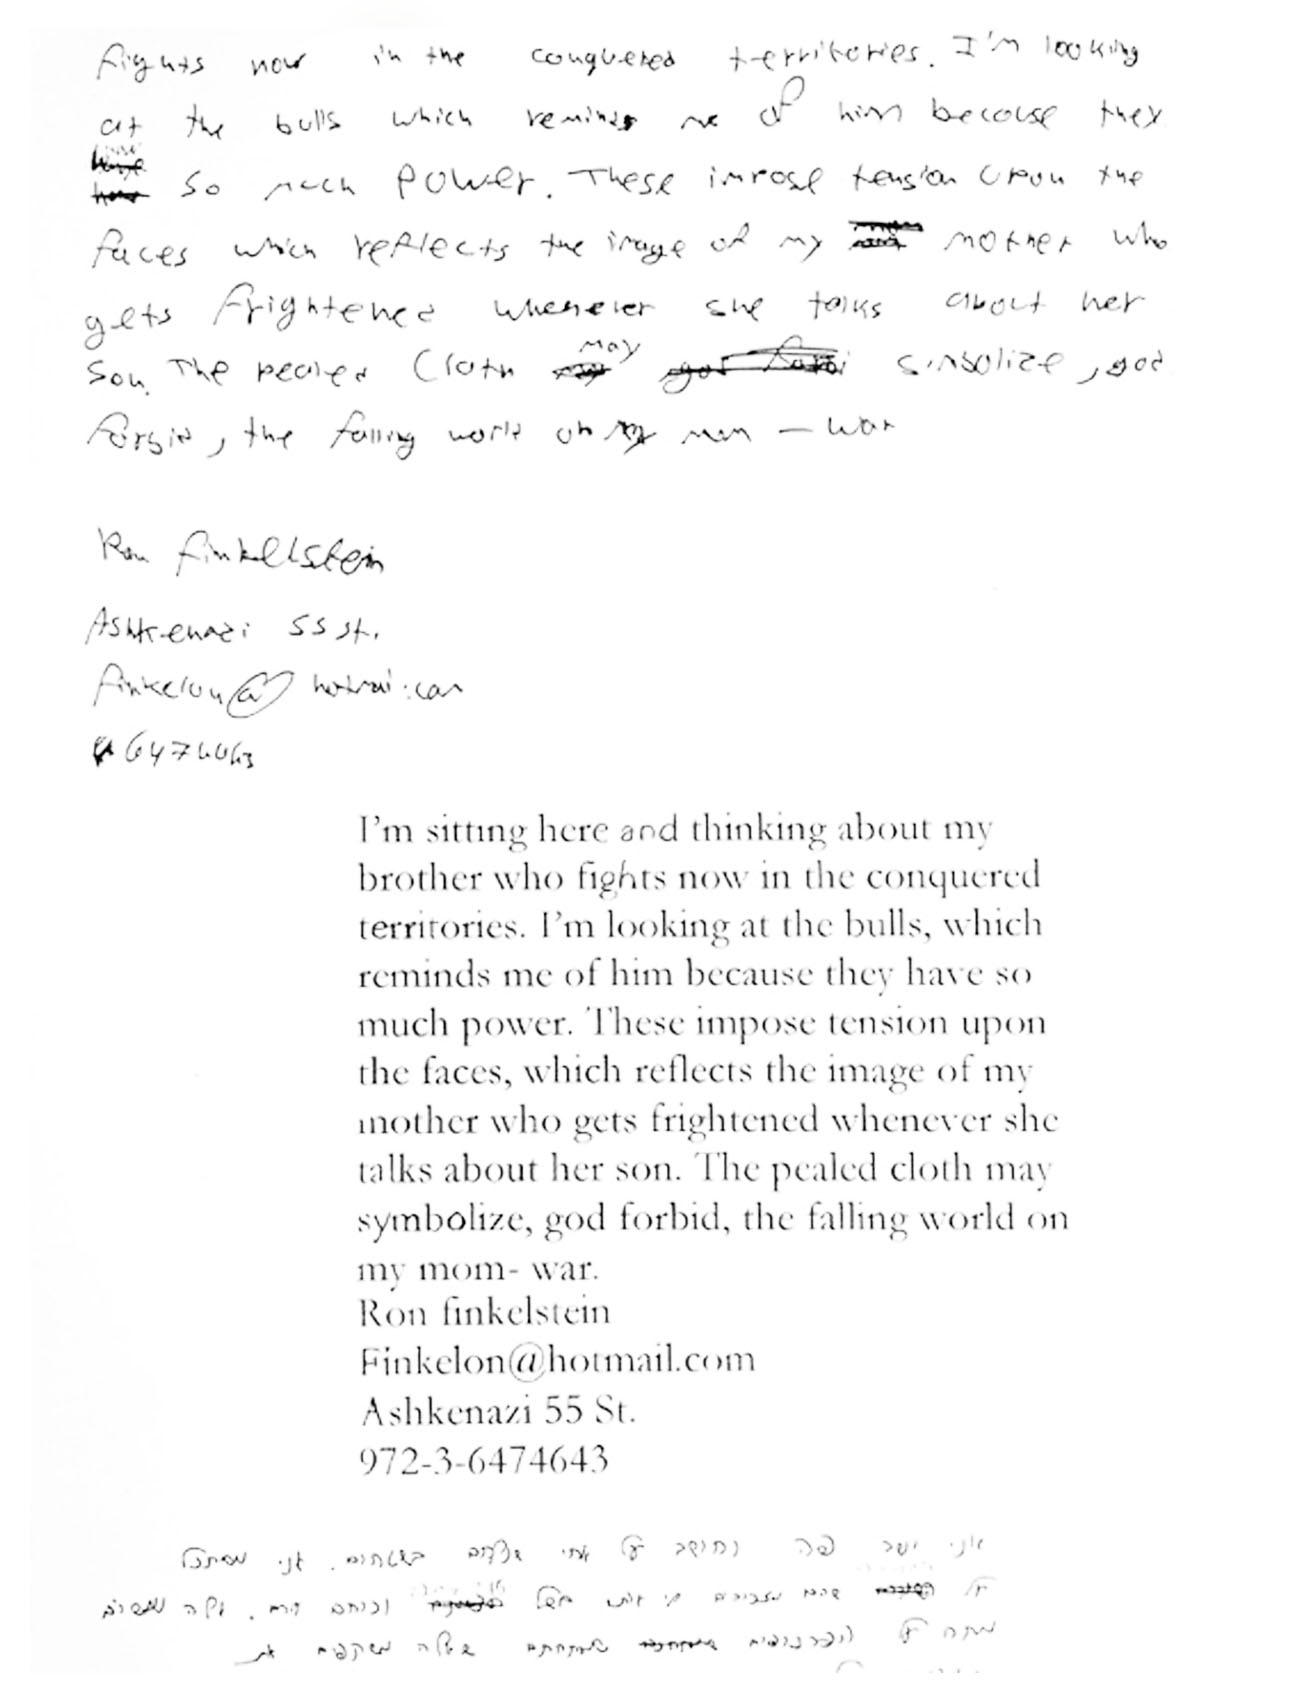 fights now in the conquered territories. I'm looking
at the bulls which reminds me of him because they
have so much power. These impose tension upon the
faces which reflects the image of my mother who
gets frightened whenever she talks about her
son. The pealed cloth may simbolize, god
forbid, the falling world on my mom - war
Ron finkelstein
Ashkenazi 55 st.
finkelon@hotmail.com
I'm sitting here and thinking about my
brother who fights now in the conquered
territories. I'm looking at the bulls, which
reminds me of him because they have so
much power. These impose tension upon
the faces, which reflects the image of my
mother who gets frightened whenever she
talks about her son. The pealed cloth may
symbolize, god forbid, the falling world on
my mom- war.
Ron finkelstein
Finkelon@hotmail.com
Ashkenazi 55 St.
972-3-6474643
אני יושב פה וחושב על אחי שנלחם בשטחים. אני מסתכל
על שהם מזכירים לי אותו בגלל
מתח על הפרצופים שמתחתם שאלה משקפים את